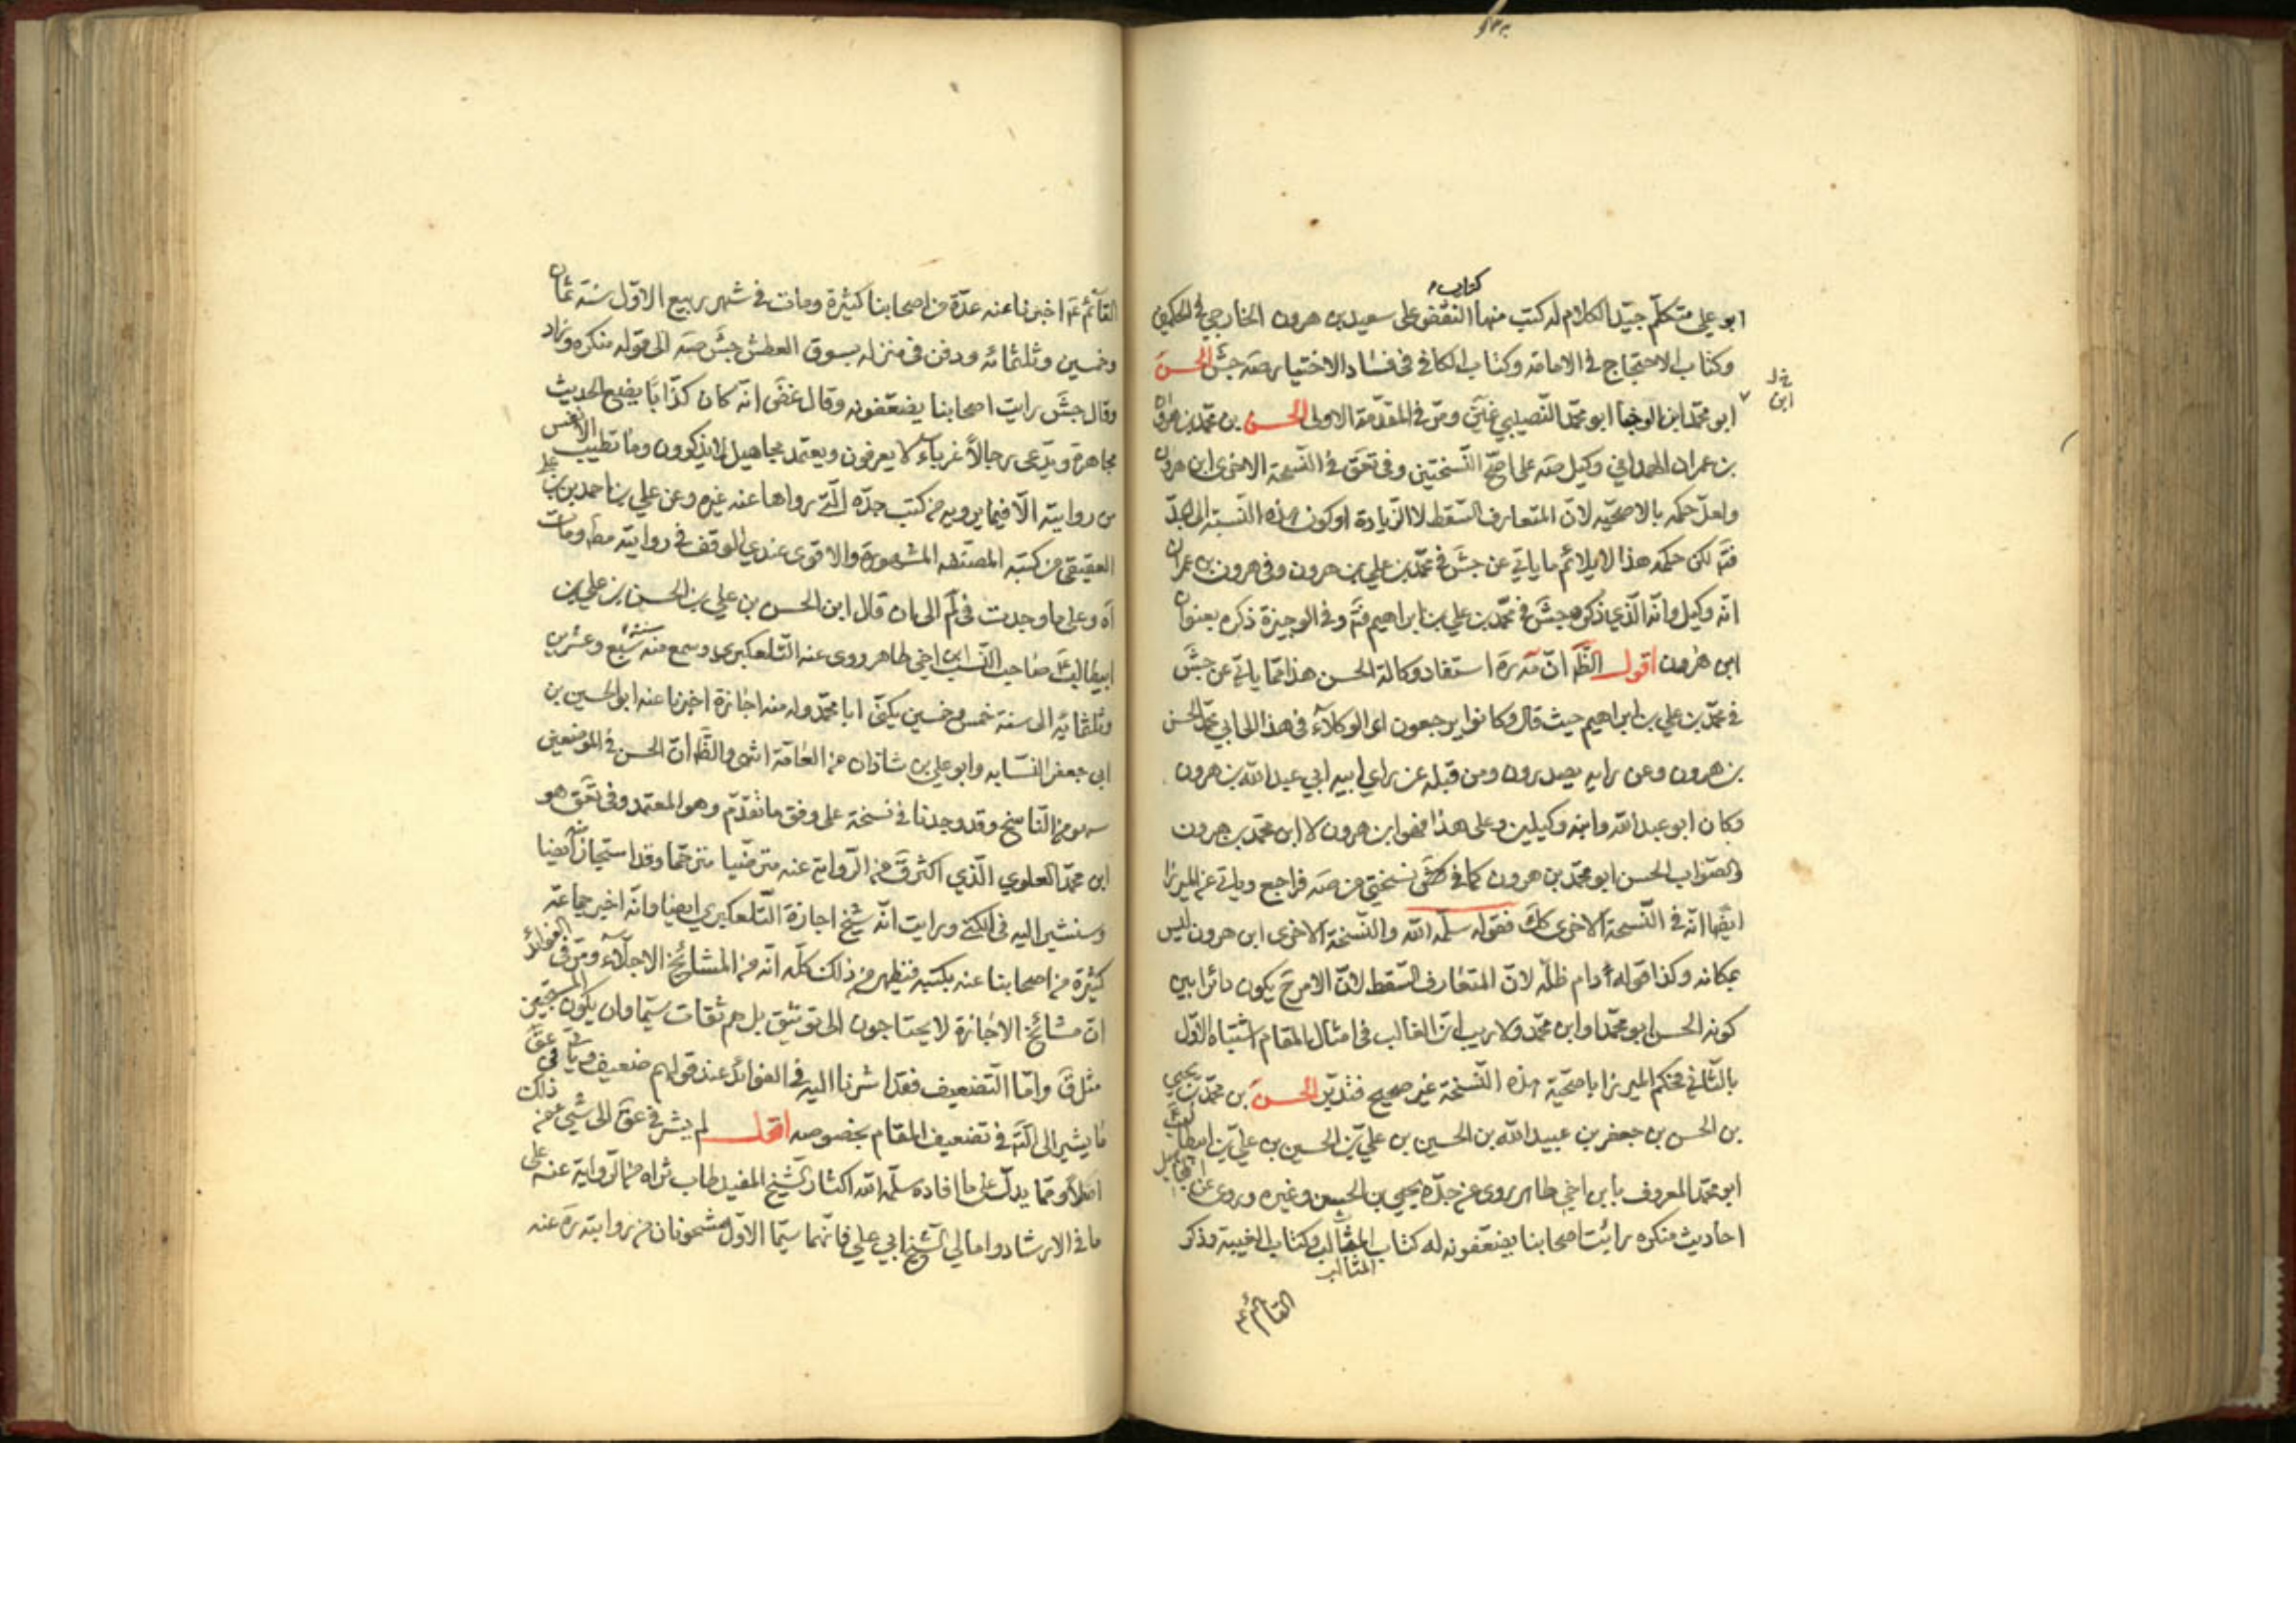 كتاب
ابو علي متكلّم جيّد الكلام له كتب منها النقض على سعيد بن هرون الخارجي في الحكمين
وكتاب الاحتجاج في الامامة وكتاب الكافي في فساد الاختيار صه جش الحسن
ابو محمّد ابن الوجنا ابو محمّد النّصيبي غير ومرّ في المقدّمة الاولى الحسن بن محمّد بن هرون
خ ل
ابن
بن عمران الهمداني وكيل صه على اصحّ النّسختين وفي تعق في النّسخة الاخرى ابن هرون
ولعلّ حكمه بالاصحّيّة لانّ المتعارف السّقط لا الزّيادة او كون هذه النّسبة الى الجدّ
فتم لكن حكمه هذا لا يلائم ما ياتي عن جش في محمّد بن علي بن هرون وفي هرون بن عمران
انّه وكيل وانّه الّذي ذكره جش في محمّد بن علي بن ابراهيم فتم وفي الوجيزة ذكره بعنوان
ابن هرون اقول الظّ انّ مه ره استفاد وكالة الحسن هذا ممّا ياتي عن جش
في محمّد بن علي بن ابراهيم حيث قال وكانوا يرجعون اى الوكلاء في هذا الى ابي محمّد الحسن
بن هرون وعن رايه يصدرون ومن قبله عن راي ابيه ابي عبد الله بن هرون
وكان ابو عبد الله وابنه وكيلين وعلى هذا فهو ابن هرون لا ابن محمّد بن هرون
والصّواب الحسن ابو محمّد بن هرون كما في نسختي من صه فراجع وياتي عن الميرزا
ايضا انّه في النّسخة الاخرى كك فقوله سلّمه الله والنّسخة الاخرى ابن هرون ليس
بمكانه وكذا قوله دام ظلّه لانّ المتعارف السّقط لانّ الامر ح يكون دائرا بين
كونه الحسن ابو محمّد او ابن محمّد ولا ريب انّ الغالب في امثال المقام اشتباه الاوّل
بالثّاني فحكم الميرزا باصحّية هذه النّسخة غير صحيح فتدبّر الحسن بن محمّد بن يحيى
بن الحسن بن جعفر بن عبيد الله بن الحسين بن علي بن الحسين بن علي بن ابيطالب
ابو محمّد المعروف بابن اخي طاهر روى عن جدّه يحيى بن الحسن وغيره وروى عن المجاهيل
احاديث منكره رايت اصحابنا يضعّفونه له كتاب المثالب وكتاب الغيبة وذكر
المثالب
القائم ع
القائم ع اخبرنا عنه عدّة من اصحابنا كثيرة ومات في شهر ربيع الاوّل سنة ثمان
وخمسين وثلثمائه ودفن في منزله بسوق العطش جش صه الى قوله منكره وزاد
وقال جش رايت اصحابنا يضعّفونه وقال غض انّه كان كذّابا يضع الحديث
مجاهرة ويدّعى رجالا غرباء لا يعرفون ويعتمد مجاهيل لا يذكرون وما تطيب الانفس
من روايته الّا فيما يرويه من كتب جدّه الّتي رواها عنه غيره وعن علي بن احمد بن علي
العقيقى من كتبه المصنّفه المشهورة والاقوى عندي الوقف في روايته مط ومات
اه وعلى ما وجدت في لم الى ان قال ابن الحسن بن علي بن الحسين بن علي بن
ابيطالب ع صاحب النّسب ابن اخي طاهر روى عنه التّلعكبري وسمع منه سنة سبع وعشرين
وثلثمائه الى سنة خمس وخمسين يكنّى ابا محمّد وله منه اجازة اخبرنا عنه ابو الحسين بن
ابي جعفر النّسّابه وابو علي بن شاذان من العامّة انتهى والظّ انّ الحسن في الموضعين
سهو من النّاسخ وقد وجدنا في نسخة على وفق ما تقدّم وهو المعتمد وفى تعق هو
ابن محمّد العلوي الّذي اكثر ق من الرّواية عنه مترضّيا مترحّما وقد استجاز ايضا
وسنشير اليه في الكنى ورايت انّه شيخ اجازة التّلعكبري ايضا وانّه اخبر جماعة
كثيرة من اصحابنا عنه بكتبه فيظهر من ذلك كلّه انّه من المشائخ الاجلّاء ومرّ في الفوائد
انّ مشائخ الاجازة لا يحتاجون الى توثيق بل هم ثقات سيّما وان يكون المستجيز
مثل ق وامّا التّضعيف فقد اشرنا اليه في الفوائد عند قولهم ضعيف وياتي في عق
ما يشير الى انّه في تضعيف المقام بخصوصه اقول لم يشر في عق الى شيء من ذلك
اصلا وممّا يدلّ على ما افاده سلّمه الله اكثار الشّيخ المفيد طاب ثراه من الرّواية عنه على
ما في الارشاد وامالي الشّيخ ابي علي فانّهما سيّما الاوّل مشحونان من روايته ره عنه